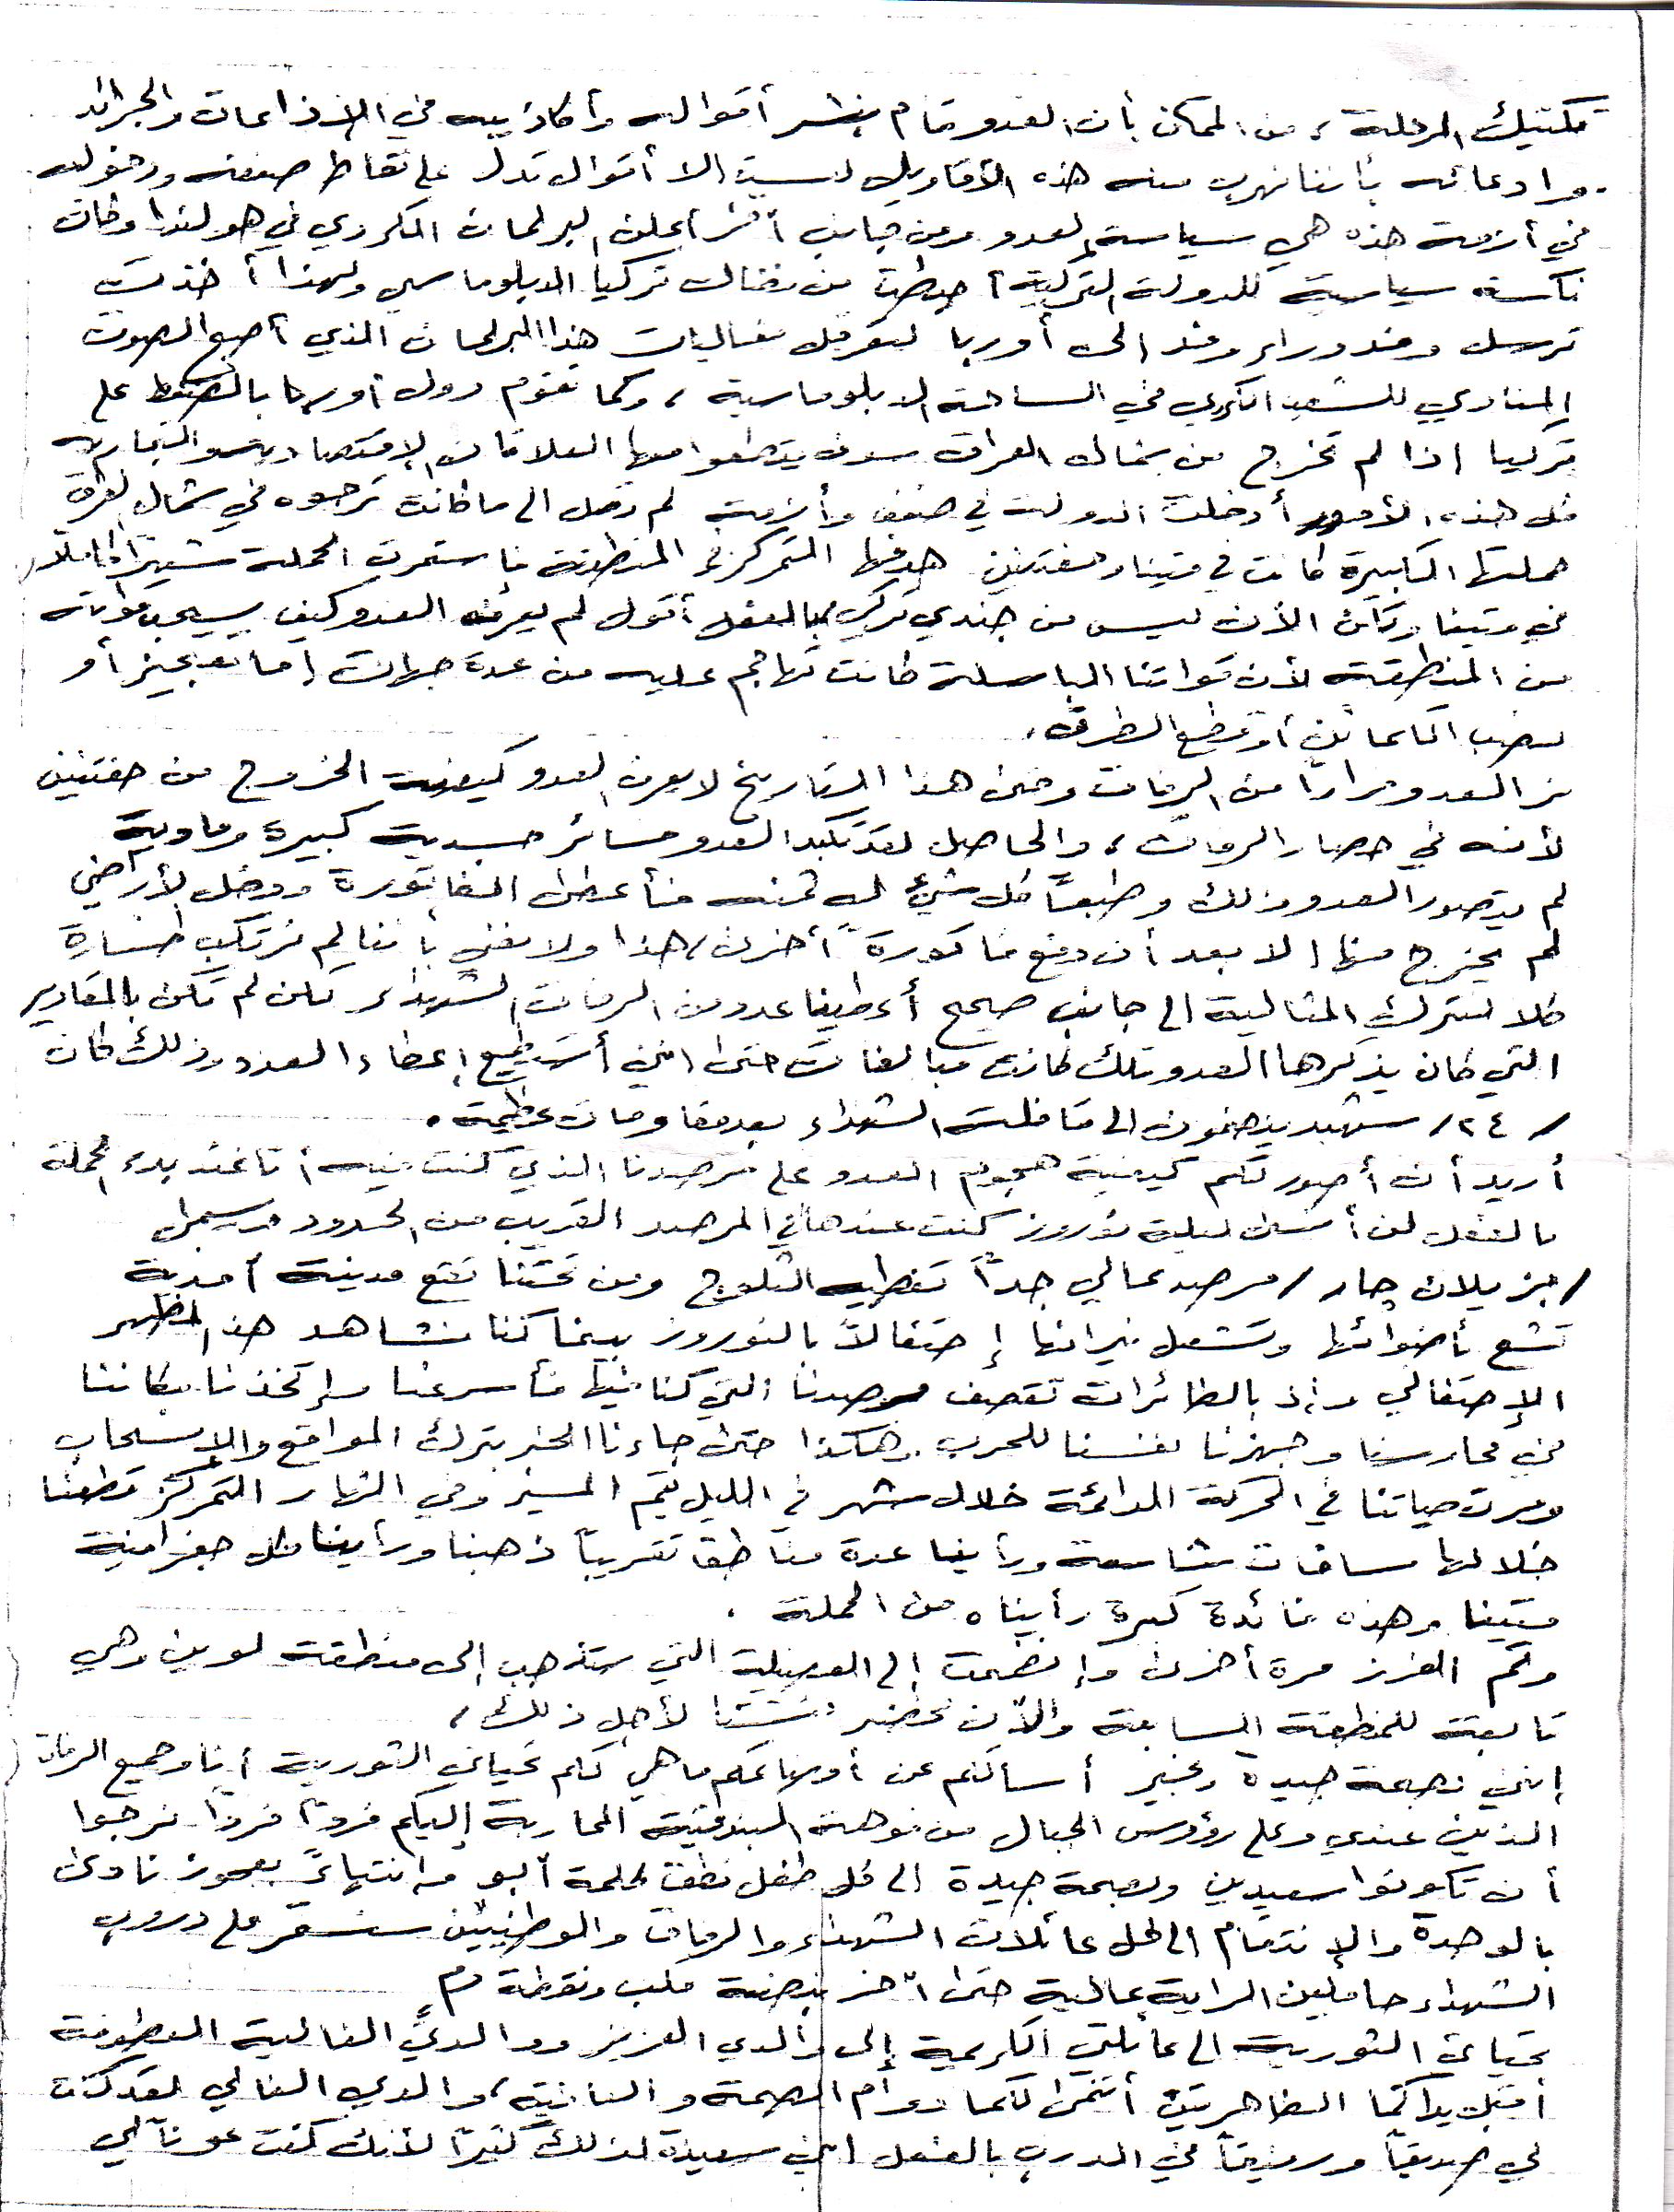 تكتيك المرحلة، من الممكن بأن العدو قام بنشر أقواله وأكاذيبه في الإذاعات والجرائد
وادعائه بأننا نهرب منه هذه الأقاويل ليست الا أقوال تدل على نقاط ضعفه ودخوله
في أزمة هذه هي سياسة العدو ومن جانب آخر أعلن البرلمان الكردي في هولندا وكان
نكسة سياسية للدولة التركية أحبطت من نضال تركيا الدبلوماسي ولهذا أخذت
ترسل وفد وراء وفد إلى أوربا لتعرقل فعاليات هذا البرلمان الذي أصبح الصوت
المنادي للشعب الكردي في الساحة الدبلوماسية، وكما تقوم دول أوربا بالضغط على
تركيا إذا لم تخرج من شمال العراق سوف يقطعوا معها العلاقات الإقتصادية والتجارية
مثل هذه الأمور أدخلت الدولة في ضعف وأزمة لم تصل الى ما كانت ترجوه في شمال العراق
حملتها الكبيرة كانت في متينا وهفتنين هدفها التمركز في المنطقة فاستمرت الحملة شهراً كاملاً
في متينا ولكن الأن ليس من جندي تركي بالفعل أقول لم يعرف العدو كيف يسحب قواته
من المنطقة لأن قواتنا الباسلة كانت تهاجم عليه من عدة جهات إما تفجير أو
نصب الكمائن أو قطع الطرق.
فر العدو مراراً من الرفاق وحتى هذا التاريخ لا يعرف العدو كيفية الخروج من حفتنين
لأنه في حصار الرفاق، والحاصل لقد تكبد العدو خسائر جسدية كبيرة ومادية
لم يتصور العدو ذلك وطبعاً كل شيء له ثمنه فأعطى الفاتورة ودخل الأراضي
لم يخرج منها الا بعد أن دفع فاتورة أخرى، هذا ولا نعني بأننا لم نرتكب خسارة
كلا لنترك المثالية الى جانب صحيح أعطينا عدد من الرفاق الشهداء لكن لم تكن بالمقادير
التي كان يذكرها العدو تلك كانت مبالغات حتى انني أستطيع إعطاء العدد وذلك كان
/٢٤/ شهيد ينضمون الى قافلة الشهداء بعد مقاومات عظيمة.
أريد أن أصور لكم كيفية هجوم العدو على مرصدنا الذي كنت فيه أنا عند بدء الحملة
بالفعل لن أنسى ليلة نوروز كنت عندها في المرصد القريب من الحدود ويسمى
/جزيلان چار/ مرصد عالي جداً تغطيه الثلوج ومن تحتنا تقع مدينة أمدية
تشع بأضوائها وتشعل نيرانها إحتفالاً بالنوروز بينما كنا نشاهد هذا المظهر
الإحتفالي وإذ بالطائرات تقصف مرصدنا التي كنا فيها فأسرعنا وإتخذنا مكاننا
في محارسنا وجهزنا نفسنا للحرب. وهكذا حتى جاءنا الخبر بترك المواقع والإنسحاب
ومرت حياتنا في الحركة الدائمة خلال شهر في الليل يتم المسير وفي النهار التمركز قطعنا
خلالها مسافات شاسعة ورأينا عدة مناطق تقريباً ذهبنا ورأينا كل جغرافية
متينا وهذه فائدة كبيرة رأيناه من الحملة.
وتم الفرز مرة أخرى وإنضممت إلى الفصيلة التي ستذهب إلى منطقة لوين وهي
تابعة للمنطقة السابقة والآن نحضر لأجل ذلك،
إنني بصحة جيدة وبخير أسألكم عن أوضاعكم ما هي لكم تحياتي الثورية أنا وجميع الرفاق
الذين عندي وعلى رؤوس الجبال من فوهة البندقية المحاربة إليكم فرداً فرداً نرجوا
أن تكونوا سعيدين وبصحة جيدة الى كل طفل نطق كلمة آبو وانتهاءً بعجوز نادى
بالوحدة والإنتقام الى كل عائلات الشهداء والرفاق والوطنيين سنستمر على دروب
الشهداء حاملين الراية عالية حتى آخر نبضة قلب ونقطة دم
تحياتي الثورية الى عائلتي الكريمة إلى والدي العزيز ووالدتي الغالية العطوفة
أقبل يداكما الطاهرتين أتمنى لكما دوام الصحة والعافية، والدي الغالي لقد كنت
لي صديقاً ورفيقاً في الدرب بالفعل انني سعيدة لذلك كثيراً لأنك كنت عوناً لي